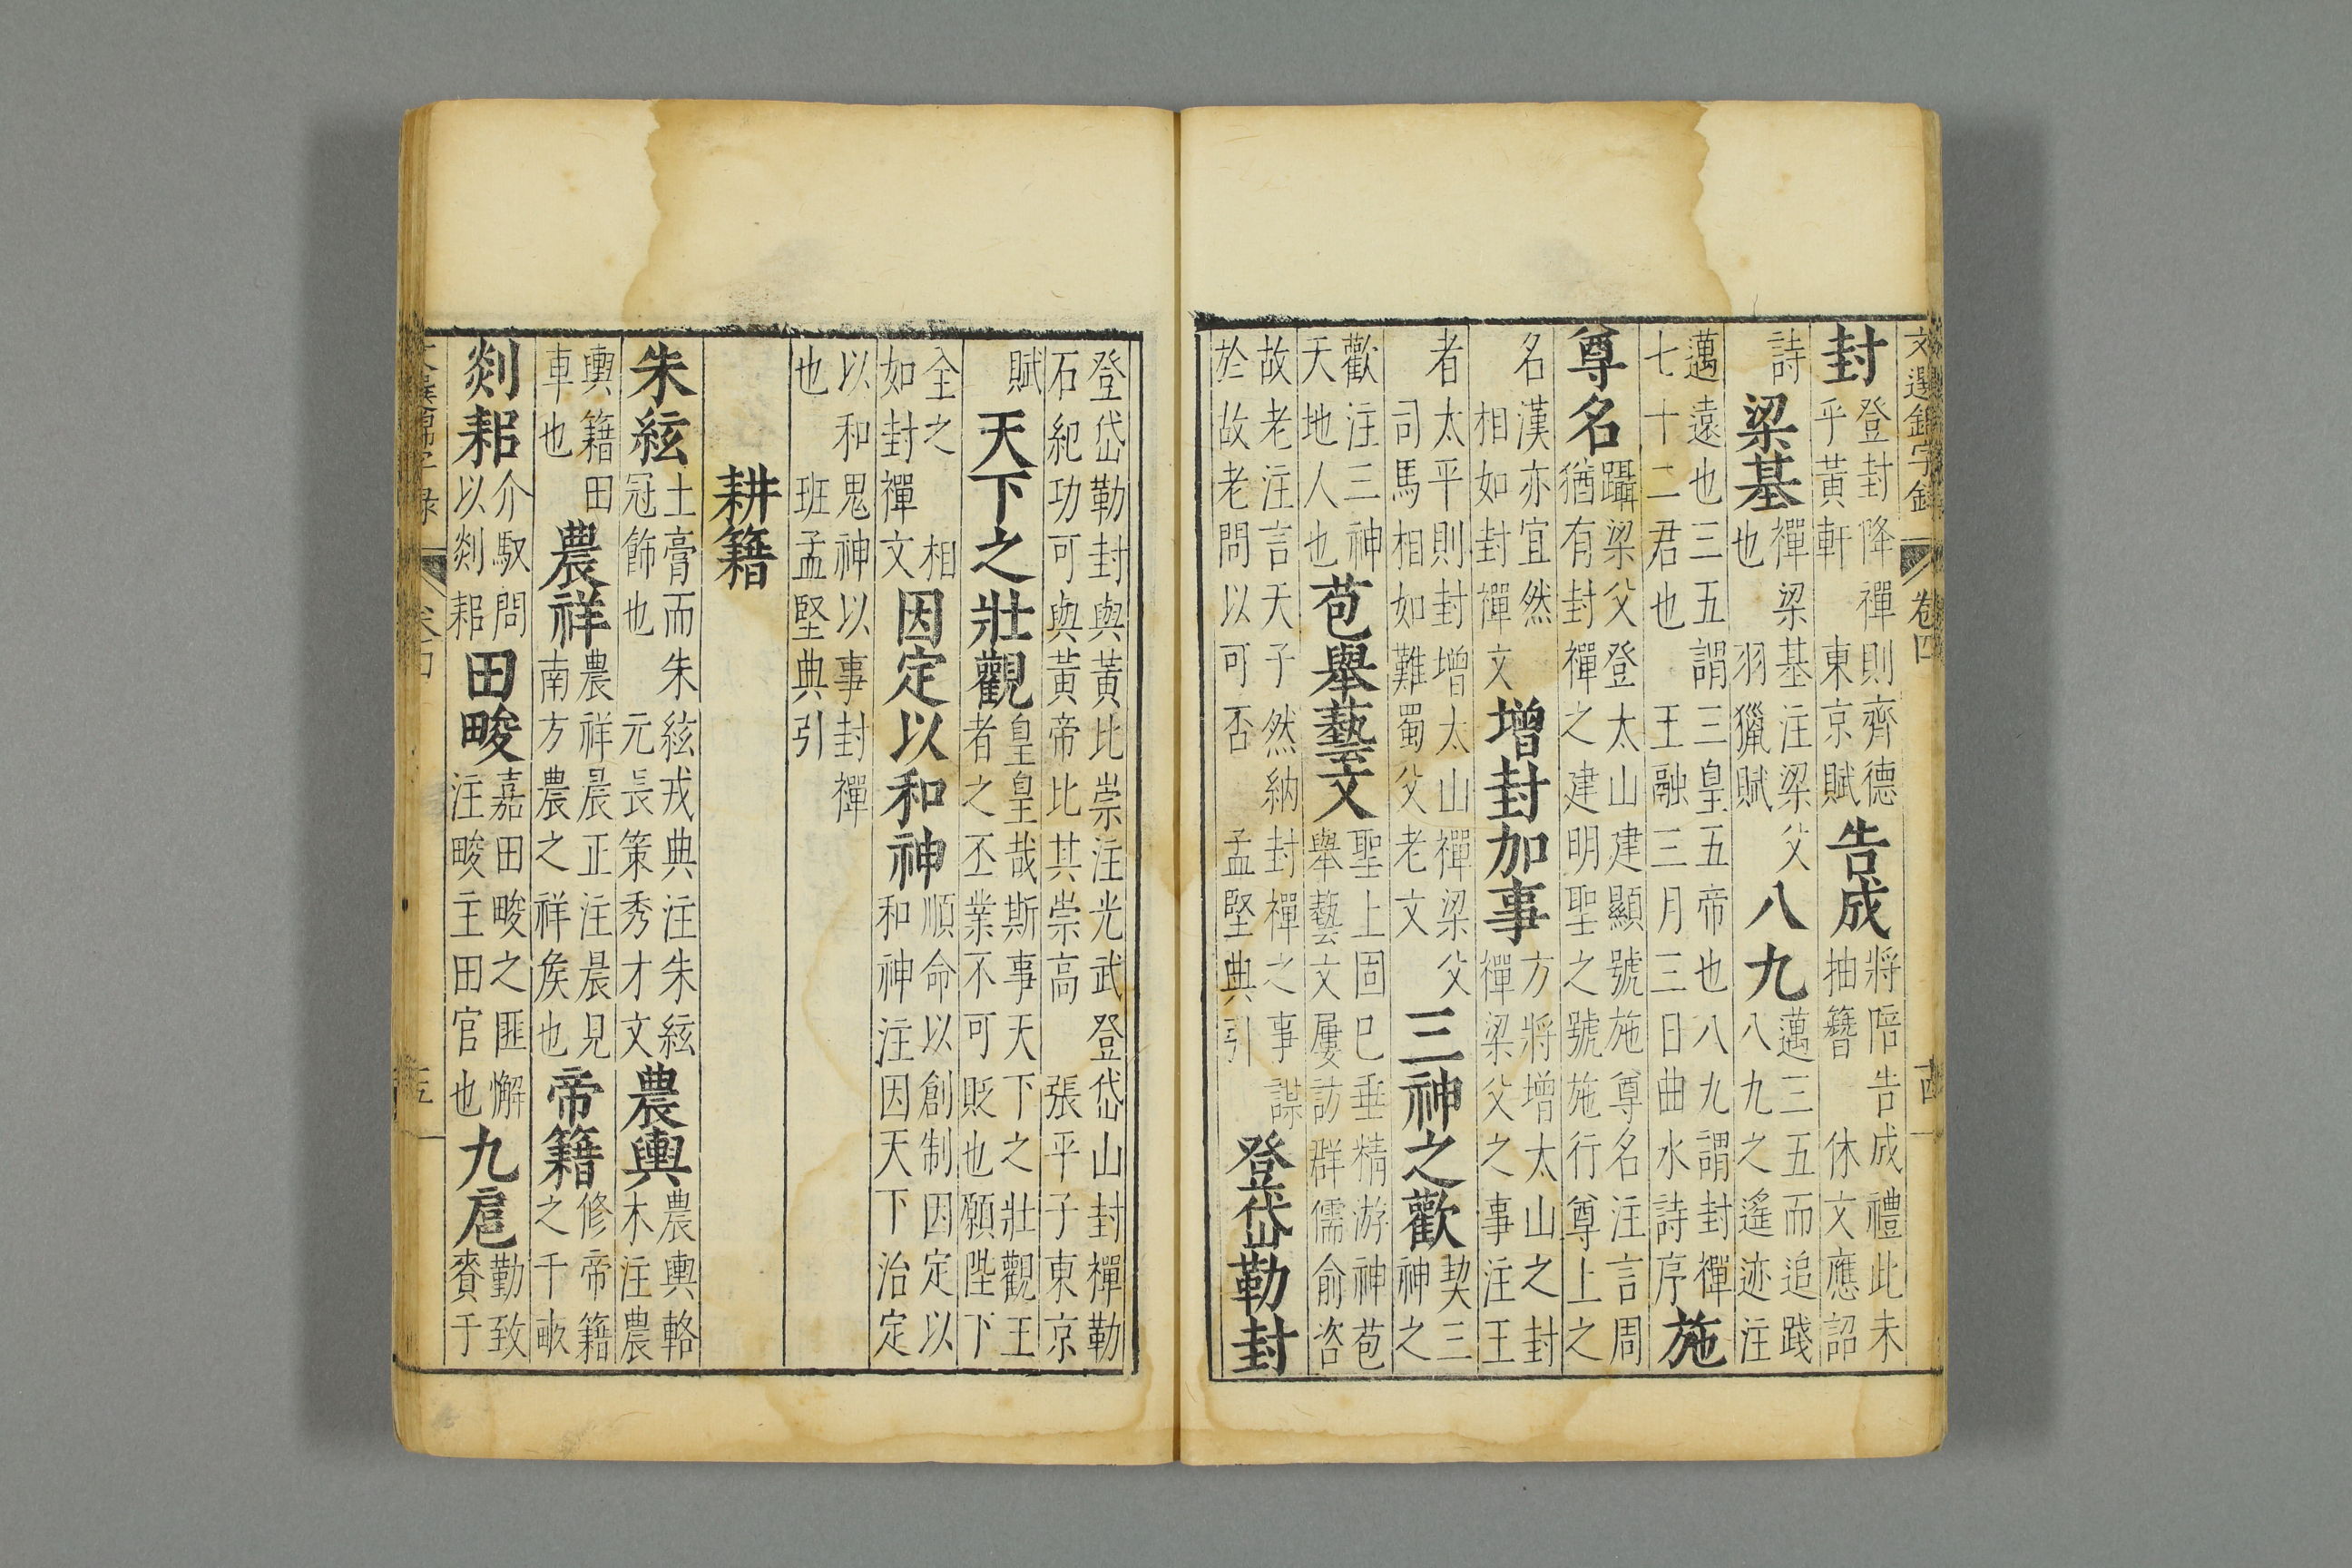 文選錦字錄 卷四 十四
封登封降禪則齊德乎黃軒 東京賦告成將陪告成禮此未抽簪 休文應詔
詩梁基禪梁基注梁父也 羽獵賦八九邁三五而追踐八九之遙迹注
邁遠也三五謂三皇五帝也八九謂封禪七十二君也 王融三月三日曲水詩序施
尊名躡梁父登太山建顯號施尊名注言周猶有封禪之建明聖之號施行尊上之
名漢亦宜然 相如封禪文增封加事方將增太山之封禪梁父之事注王
者太平則封增太山禪梁父 司馬相如難蜀父老文三神之歡契三神之
歡注三神天地人也苞舉藝文聖上固已垂精游神苞舉藝文屢訪群儒俞咨
故老注言天子然納封禪之事謀於故老問以可否 孟堅典引登岱勒封
登岱勒封與黃比崇注光武登岱山封禪勒石紀功可與黃帝比其崇高 張平子東京
賦天下之壯觀皇皇哉斯事天下之壯觀王者之丕業不可貶也願陛下
全之 相如封禪文因定以和神順命以創制因定以和神注因天下治定
以和鬼神以事封禪也 班孟堅典引
耕籍
朱絃土膏而朱絃戎典注朱絃冠飾也 元長策秀才文農輿農輿輅木注農
輿籍田車也農祥農祥晨正注晨見南方農之祥矦也帝籍修帝籍之千畝
剡耜介馭問以剡耜田畯嘉田畯之匪懈注畯主田官也九扈勤致賚于
文選錦字錄 卷四 十五